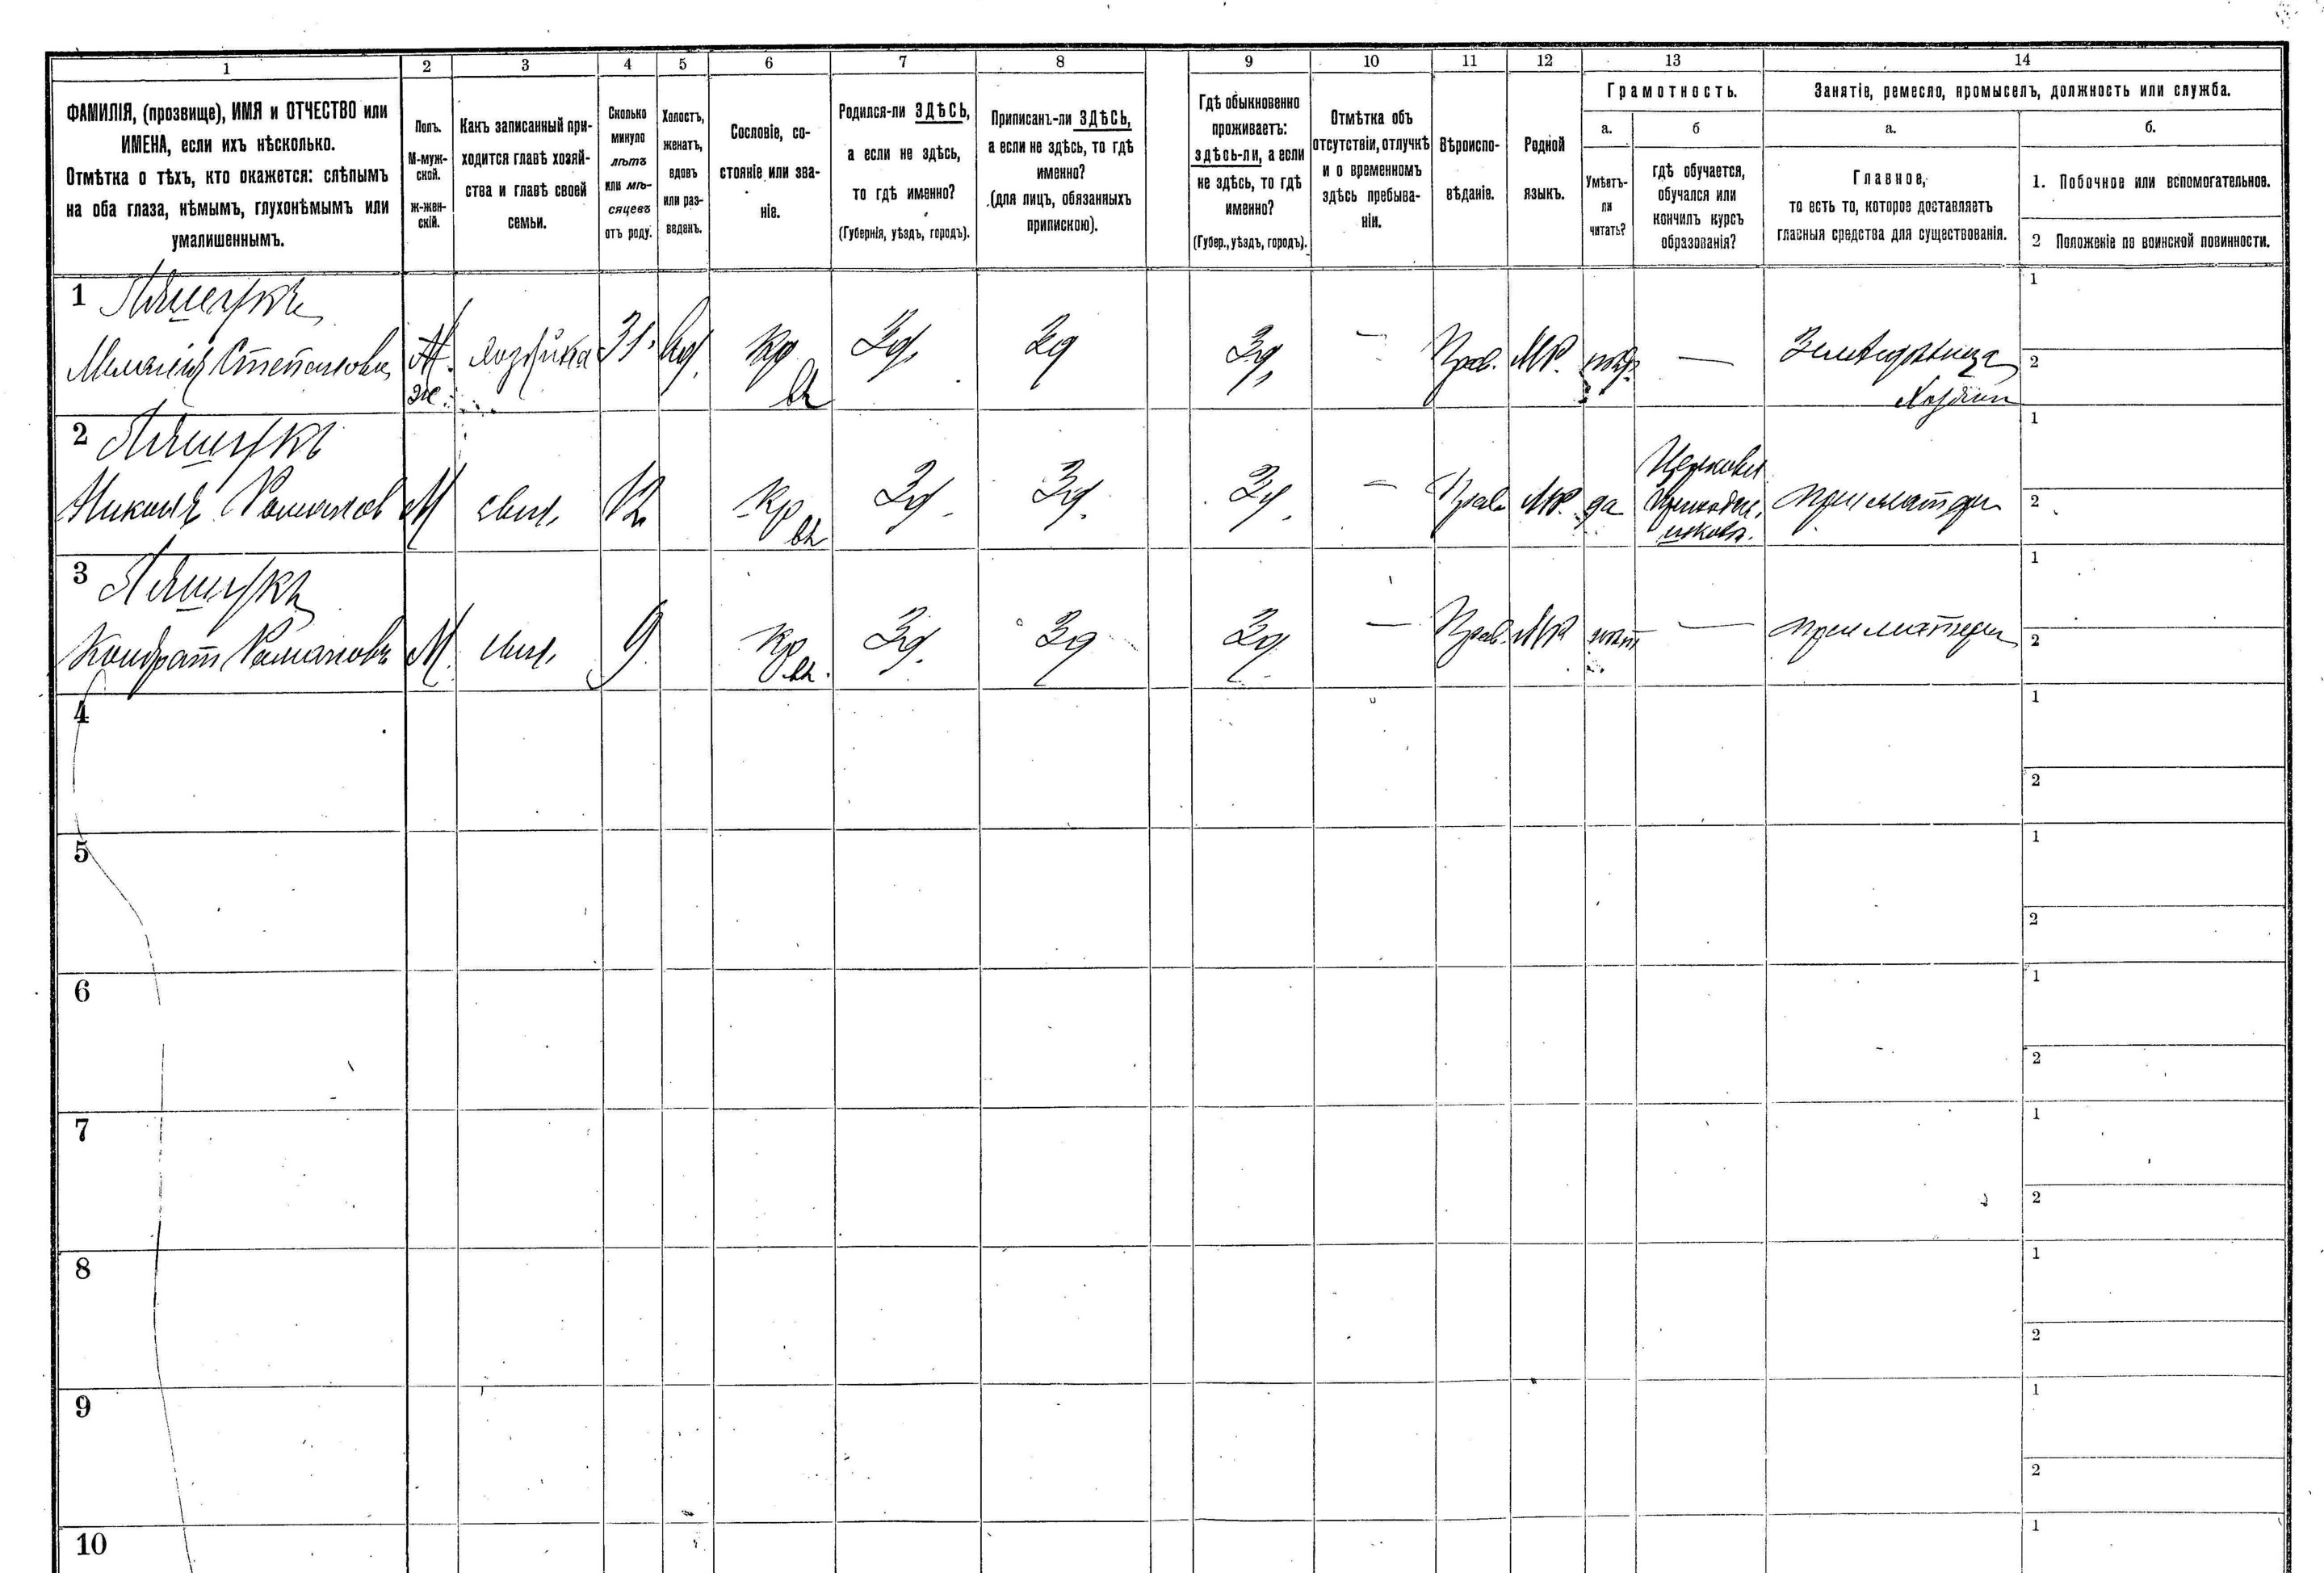 1 2 3 4 5 6 7 8 9 10 11 12 13 14
ФАМИЛІЯ, (прозвище), ИМЯ и ОТЧЕСТВО или
ИМЕНА, если ихъ нѣсколько.
Отмѣтка о тѣхъ, кто окажется: слѣпымъ
на оба глаза, нѣмымъ, глухонѣмымъ или
умалишеннымъ.
Полъ.
М-муж-
ской.
Ж-жен-
скій.
Какъ записанный при-
ходится главѣ хозяй-
ства и главѣ своей
семьи.
Сколько
минуло
лѣтъ
или мѣ-
сяцевъ
отъ роду.
Холостъ,
женатъ,
вдовъ
или раз-
веденъ.
Сословіе, со-
стояніе или зва-
ніе.
Родился-ли ЗДѢСЬ,
а если не здѣсь,
то гдѣ именно?
(Губернія, уѣздъ, городъ).
Приписанъ-ли ЗДѢСЬ,
а если не здѣсь, то гдѣ
именно?
(для лицъ, обязанныхъ
припискою).
Гдѣ обыкновенно
проживаетъ:
здѣсь-ли, а если
не здѣсь, то гдѣ
именно?
(Губер., уѣздъ, городъ).
Отмѣтка объ
отсутствіи, отлучкѣ
и о временномъ
здѣсь пребыва-
ніи.
Вѣроиспо-
вѣданіе.
Родной
языкъ.
Грамотность.
а.
Умѣетъ-
ли
читать?
б
гдѣ обучается,
обучался или
кончилъ курсъ
образованія?
Занятіе, ремесло, промыселъ, должность или служба.
а.
Главное,
то есть то, которое доставляетъ
главныя средства для существованія.
б.
1. Побочное или вспомогательное.
2 Положеніе по воинской повинности.
1
Степановна
ж.
хозяйка
31.
вд.
Кр
вл
Зд.
Зд
Зд.
—
Прав.
МР.
—
Хозяин
1
2
2
Романов
М
сын.
12
Кр
вл
Зд.
Зд.
Зд.
—
Прав.
МР.
да
при матери
1
2
3
Кондрат Романовъ
М
сын.
9
Кр
вл.
Зд.
Зд
Зд
—
Прав.
МР
нѣт
—
при матери
1
2
4
1
2
5
1
2
6
1
2
7
1
2
8
1
2
9
1
2
10
1